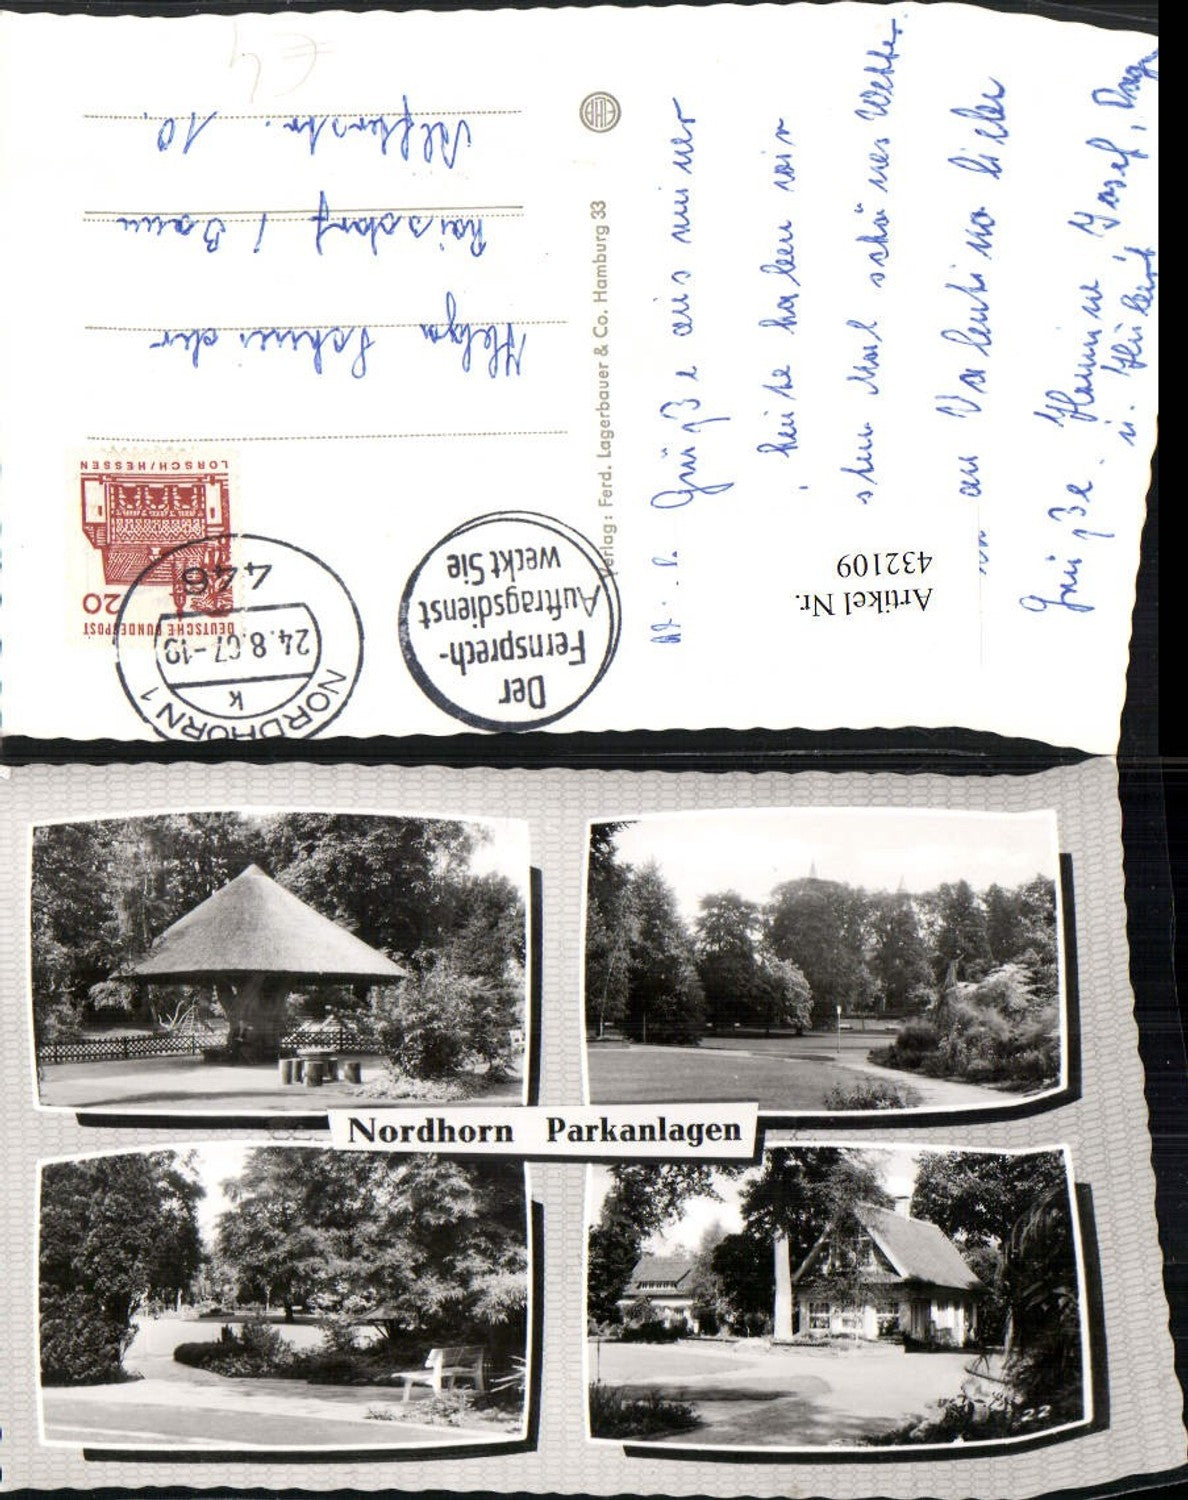 Der
Fernsprech-
Auftragsdienst
weckt Sie
NORDHORN 1
k
24.8.67-19
446
DEUTSCHE BUNDESPOST
20
LORSCH/HESSEN
Helga Schneider
Roisdorf / Bonn
10.
Verlag: Ferd. Lagerbauer & Co. Hamburg 33
Artikel Nr.
432109
Grüße aus
heute haben wir
mal schönes Wetter.
an
Grüße. Josef,
u.
Nordhorn Parkanlagen
22